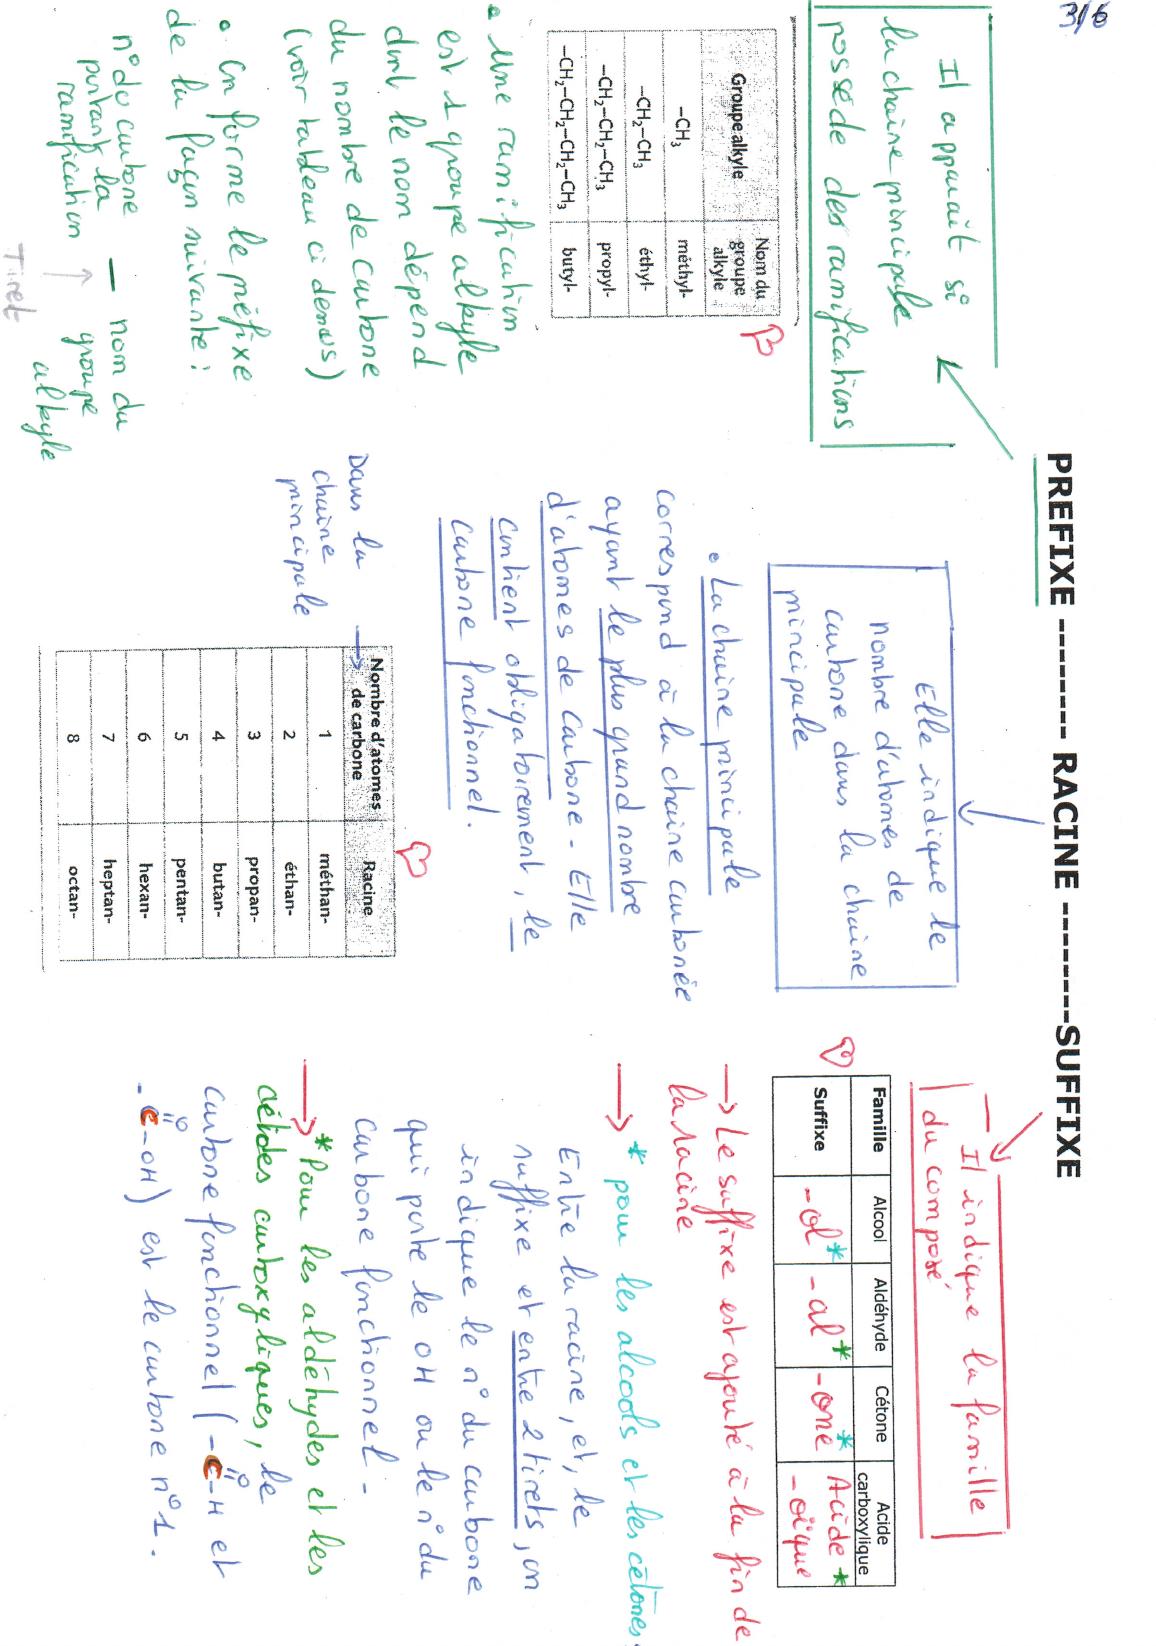 3/6
PREFIXE ------- RACINE --------SUFFIXE
Il apparaît si
la chaine principale
possède des ramifications
Groupe alkyle | Nom du groupe alkyle
–CH3 | méthyl-
–CH2–CH3 | éthyl-
–CH2–CH2–CH3 | propyl-
–CH2–CH2–CH2–CH3 | butyl-
• Une ramification
est 1 groupe alkyle
dont le nom dépend
du nombre de carbone
(voir tableau ci dessus)
• On forme le préfixe
de la façon suivante :
n° du carbone — nom du
portant la groupe
ramification alkyle
↑
Tiret
Elle indique le
nombre d'atomes de
carbone dans la chaine
principale
• La chaine principale
correspond à la chaine carbonée
ayant le plus grand nombre
d'atomes de carbone. Elle
contient obligatoirement, le
carbone fonctionnel.
Dans la
chaine
principale →
Nombre d'atomes de carbone | Racine
1 | méthan-
2 | éthan-
3 | propan-
4 | butan-
5 | pentan-
6 | hexan-
7 | heptan-
8 | octan-
Il indique la famille
du composé
Famille | Alcool | Aldéhyde | Cétone | Acide carboxylique
Suffixe | -ol* | -al* | -one* | Acide * -oïque
→ Le suffixe est ajouté à la fin de
la racine
→ * pour les alcools et les cétones.
Entre la racine, et, le
suffixe et entre 2 tirets, on
indique le n° du carbone
qui porte le OH ou le n° du
carbone fonctionnel.
→ * Pour les aldéhydes et les
acides carboxyliques, le
carbone fonctionnel (-C-H et
O
=
-C-OH) est le carbone n°1.
O
=